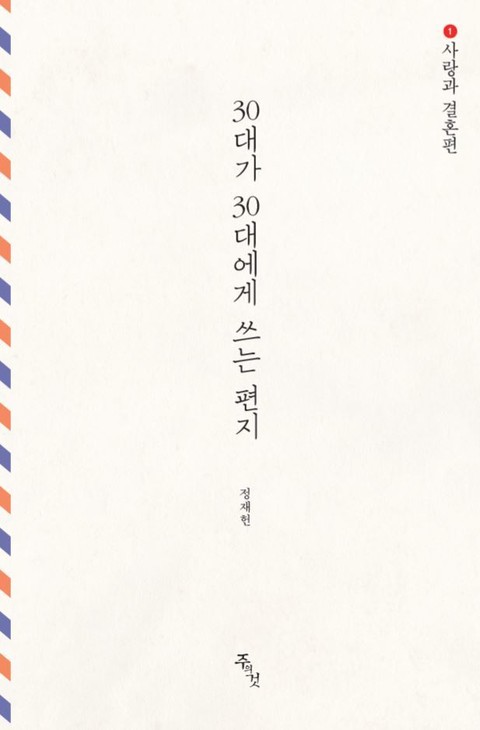 1 사랑과 결혼편
30대가 30대에게 쓰는 편지
정재헌
주의것